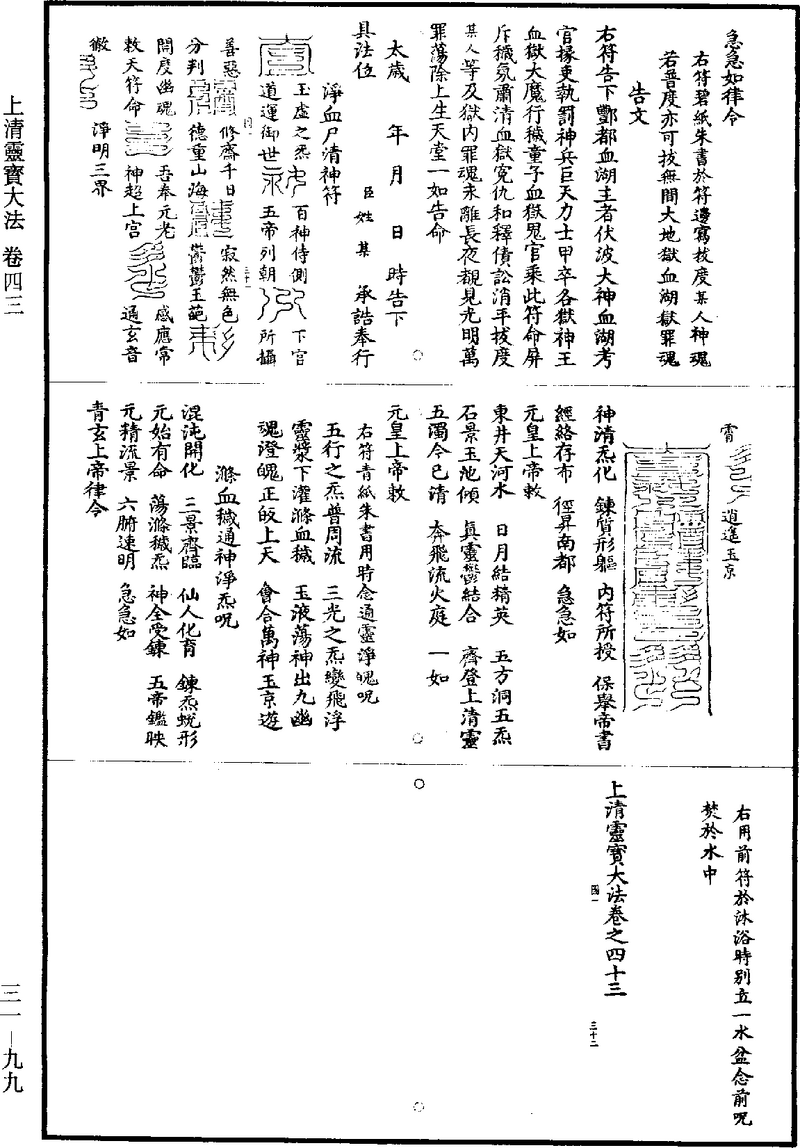 急急如律令
右符碧紙朱書於符邊寫拔度某人神魂
若普度亦可拔無間大地獄血湖獄罪魂
告文
右符告下酆都血湖主者伏波大神血湖考
官掾吏執罰神兵巨天力士甲卒各獄神王
血獄大魔行穢童子血獄鬼官乘此符命屏
斥穢氛肅清血獄寃仇和釋債訟消平拔度
某人等及獄内罪魂永離長夜覩見光明萬
罪蕩除上生天堂一如告命
太歲 年 月 日 時告下
具法位 臣 姓 某 承誥奉行
淨血尸清神符
玉虛之炁 百神侍側 下官
道運御世 五帝列朝 所攝
善惡 修齋千日 寂然無色
分判 德重山海 鬱鬱玉葩
開度幽魂 吾奉元老 感應常
敕天符命 神超上宫 通玄音
徹 淨明三界
霄 逍遥玉京
神清炁化 鍊質形軀 内符所授 保舉帝書
經絡存布 徑昇南都 急急如
元皇上帝敕
東井天河水 日月結精英 五方洞五炁
石景玉池傾 真靈鬱結合 齊登上清靈
五濁今已清 奔飛流火庭 一如
元皇上帝敕
右符青紙朱書用時念通靈淨魄呪
五行之炁普周流 三光之炁變飛浮
靈漿下灌滌血穢 玉液蕩神出九幽
魂澄魄正皎上天 會合萬神玉京遊
滌血穢通神淨炁呪
混沌開化 三景齊臨 仙人化育 鍊炁蛻形
元始有命 蕩滌穢炁 神全受鍊 五帝鑑映
元精流景 六腑速明 急急如
青玄上帝律令
右用前符於沐浴時别立一水盆念前呪
焚於水中
上清靈寶大法卷之四十三
國一 三十二
上清靈寶大法 卷四三
三一—九九